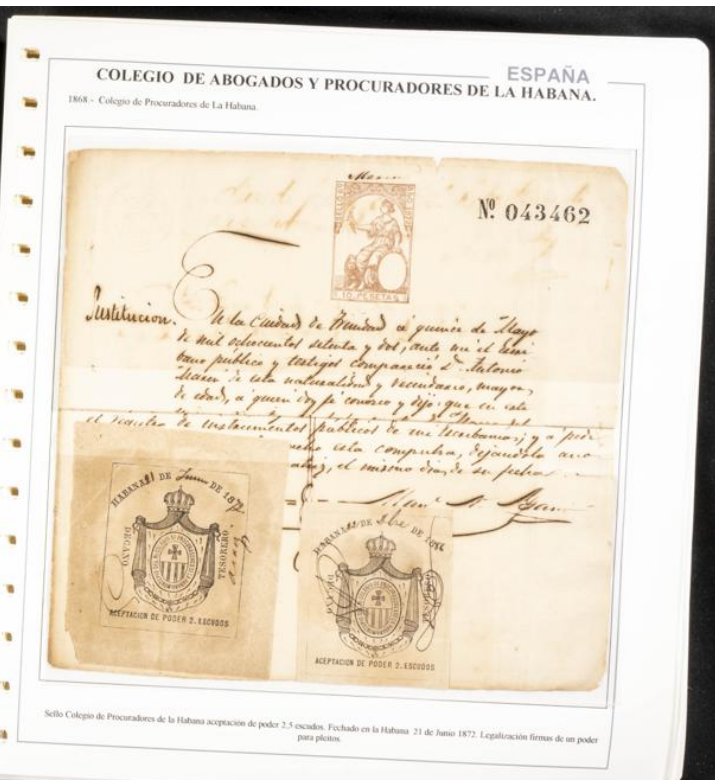 ESPAÑA
COLEGIO DE ABOGADOS Y PROCURADORES DE LA HABANA.
1868 - Colegio de Procuradores de La Habana.
Nº 043462
10 PESETAS
Sustitucion. En la Ciudad de Trinidad á quince de Mayo
de mil ochocientos setenta y dos, ante mi el Escri
bano público y testigos compareció D. Antonio
de esta naturalidad y vecindario, mayor
de edad, á quien doy fé conozco y dijo: que en este
el registro de instrumentos públicos de mi Escribania; y a pedi
esta compulsa, dejandola ano
el mismo dia de su fecha
HABANA 21 DE Junio DE 1872
DECANO
TESORERO
ACEPTACION DE PODER 2. ESCUDOS
HABANA DE DE 18
DECANO
TESORERO
ACEPTACION DE PODER 2. ESCUDOS
Sello Colegio de Procuradores de la Habana aceptación de poder 2,5 escudos. Fechado en la Habana 21 de Junio 1872. Legalización firmas de un poder
para pleitos.